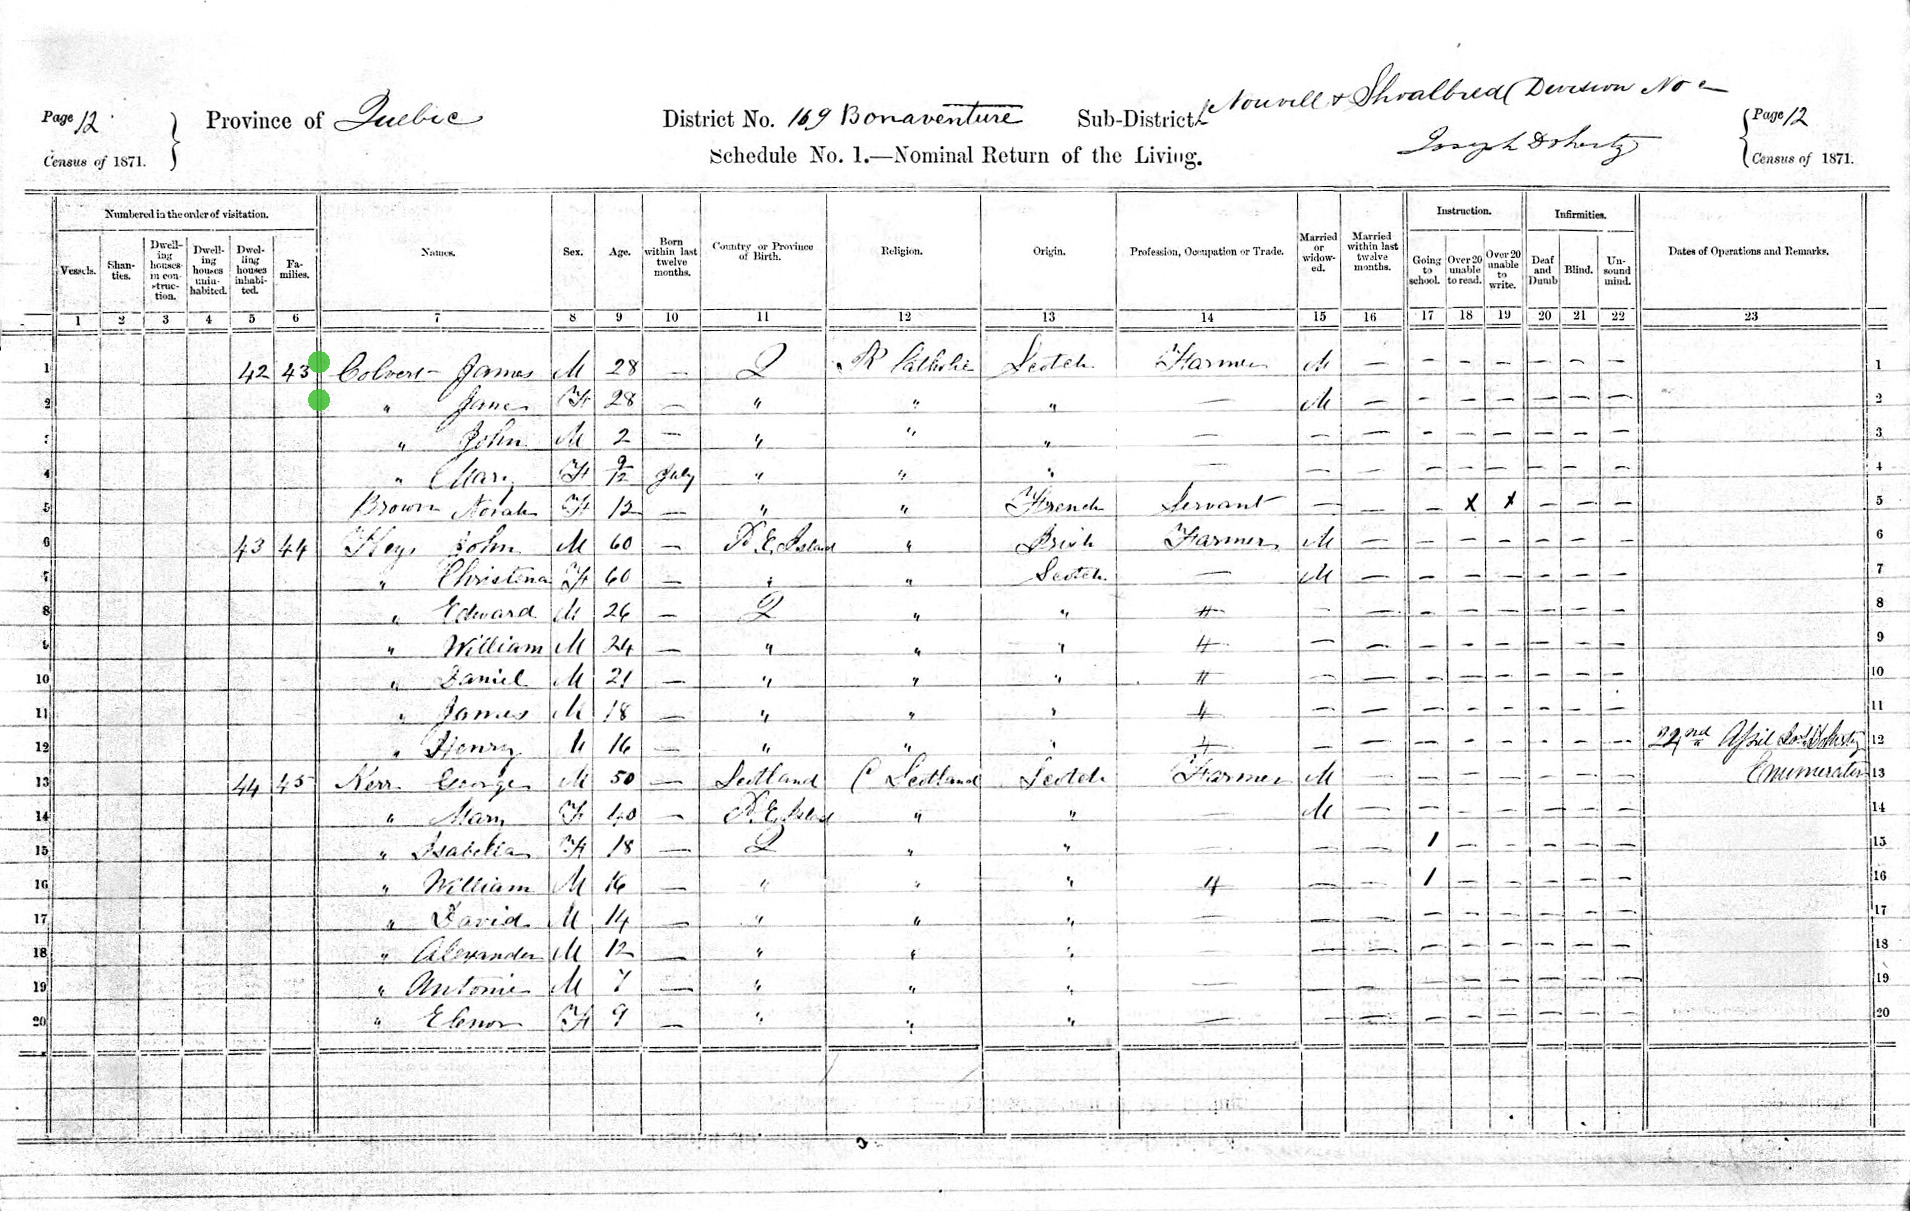 Page 12 Province of Quebec District No. 169 Bonaventure Sub-District Nouvell & Shoalbred Division No Page 12
Census of 1871. Schedule No. 1.—Nominal Return of the Living. Joseph Doherty Census of 1871.
Numbered in the order of visitation. Names. Sex. Age. Born within last twelve months. Country or Province of Birth. Religion. Origin. Profession, Occupation or Trade. Married or widowed. Married within last twelve months. Instruction. Infirmities. Dates of Operations and Remarks.
Vessels. Shanties. Dwelling houses in construction. Dwelling houses uninhabited. Dwelling houses inhabited. Families. Going to school. Over 20 unable to read. Over 20 unable to write. Deaf and Dumb Blind. Unsound mind.
1 2 3 4 5 6 7 8 9 10 11 12 13 14 15 16 17 18 19 20 21 22 23
1 42 43 Colvert James M 28 — Q R Catholic Scotch Farmer M — — — — — — — 1
2 " Jane F 28 — " " " — M — — — — — — — 2
3 " John M 2 — " " " — — — — — — — — — 3
4 " Mary F 9/12 July " " " — — — — — — — — — 4
5 Brown Norah F 12 — " " French Servant — — — x x — — — 5
6 43 44 Heys John M 60 — P E Island " Irish Farmer M — — — — — — — 6
7 " Christena F 60 — " " Scotch — M — — — — — — — 7
8 " Edward M 26 — Q " " " — — — — — — — — 8
9 " William M 24 — " " " " — — — — — — — — 9
10 " Daniel M 21 — " " " " — — — — — — — — 10
11 " James M 18 — " " " " — — — — — — — — 11
12 " Henry M 16 — " " " " — — — — — — — — 22nd April Doherty 12
13 44 45 Kerr George M 50 — Scotland C Scotland Scotch Farmer M — — — — — — — Enumerator 13
14 " Mary F 40 — P. E. Island " " — M — — — — — — — 14
15 " Isabella F 18 — Q " " — — — 1 — — — — — 15
16 " William M 16 — " " " " — — 1 — — — — — 16
17 " David M 14 — " " " — — — — — — — — — 17
18 " Alexander M 12 — " " " — — — — — — — — — 18
19 " Antonie M 7 — " " " — — — — — — — — — 19
20 " Elenor F 9 — " " " — — — — — — — — — 20